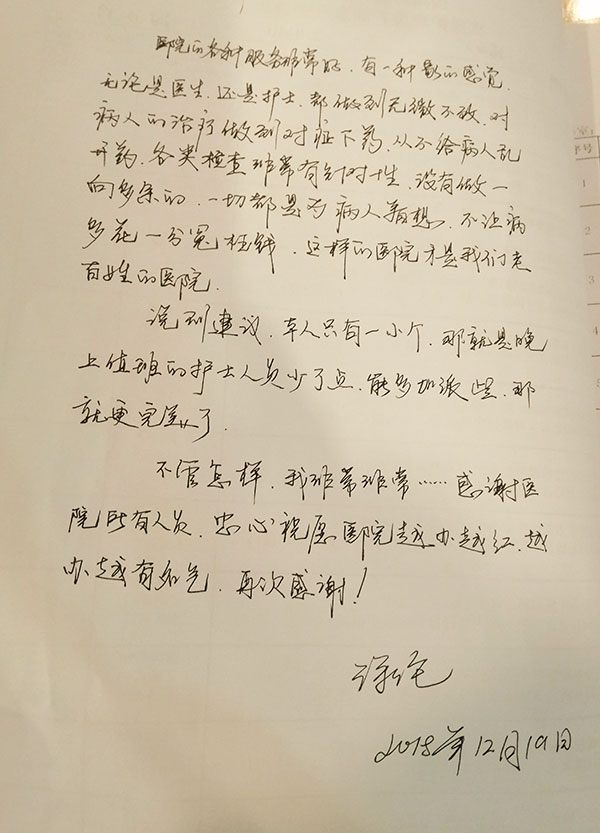 医院的各种服务非常好，有一种家的感觉，
无论是医生，还是护士，都做到无微不致，对
病人的治疗做到对症下药，从不给病人乱
开药，各类检查非常有针对性，没有做一
向多余的，一切都是为病人着想，不让病
多花一分冤枉钱，这样的医院才是我们老
百姓的医院。
说到建议，本人只有一小个，那就是晚
上值班的护士人员少了点，能多加派些，那
就更完美了。
不管怎样，我非常非常……感谢医
院所有人员，忠心祝愿医院越办越红，越
办越有名气，再次感谢！
2018年12月19日
室
序号
1
2
3